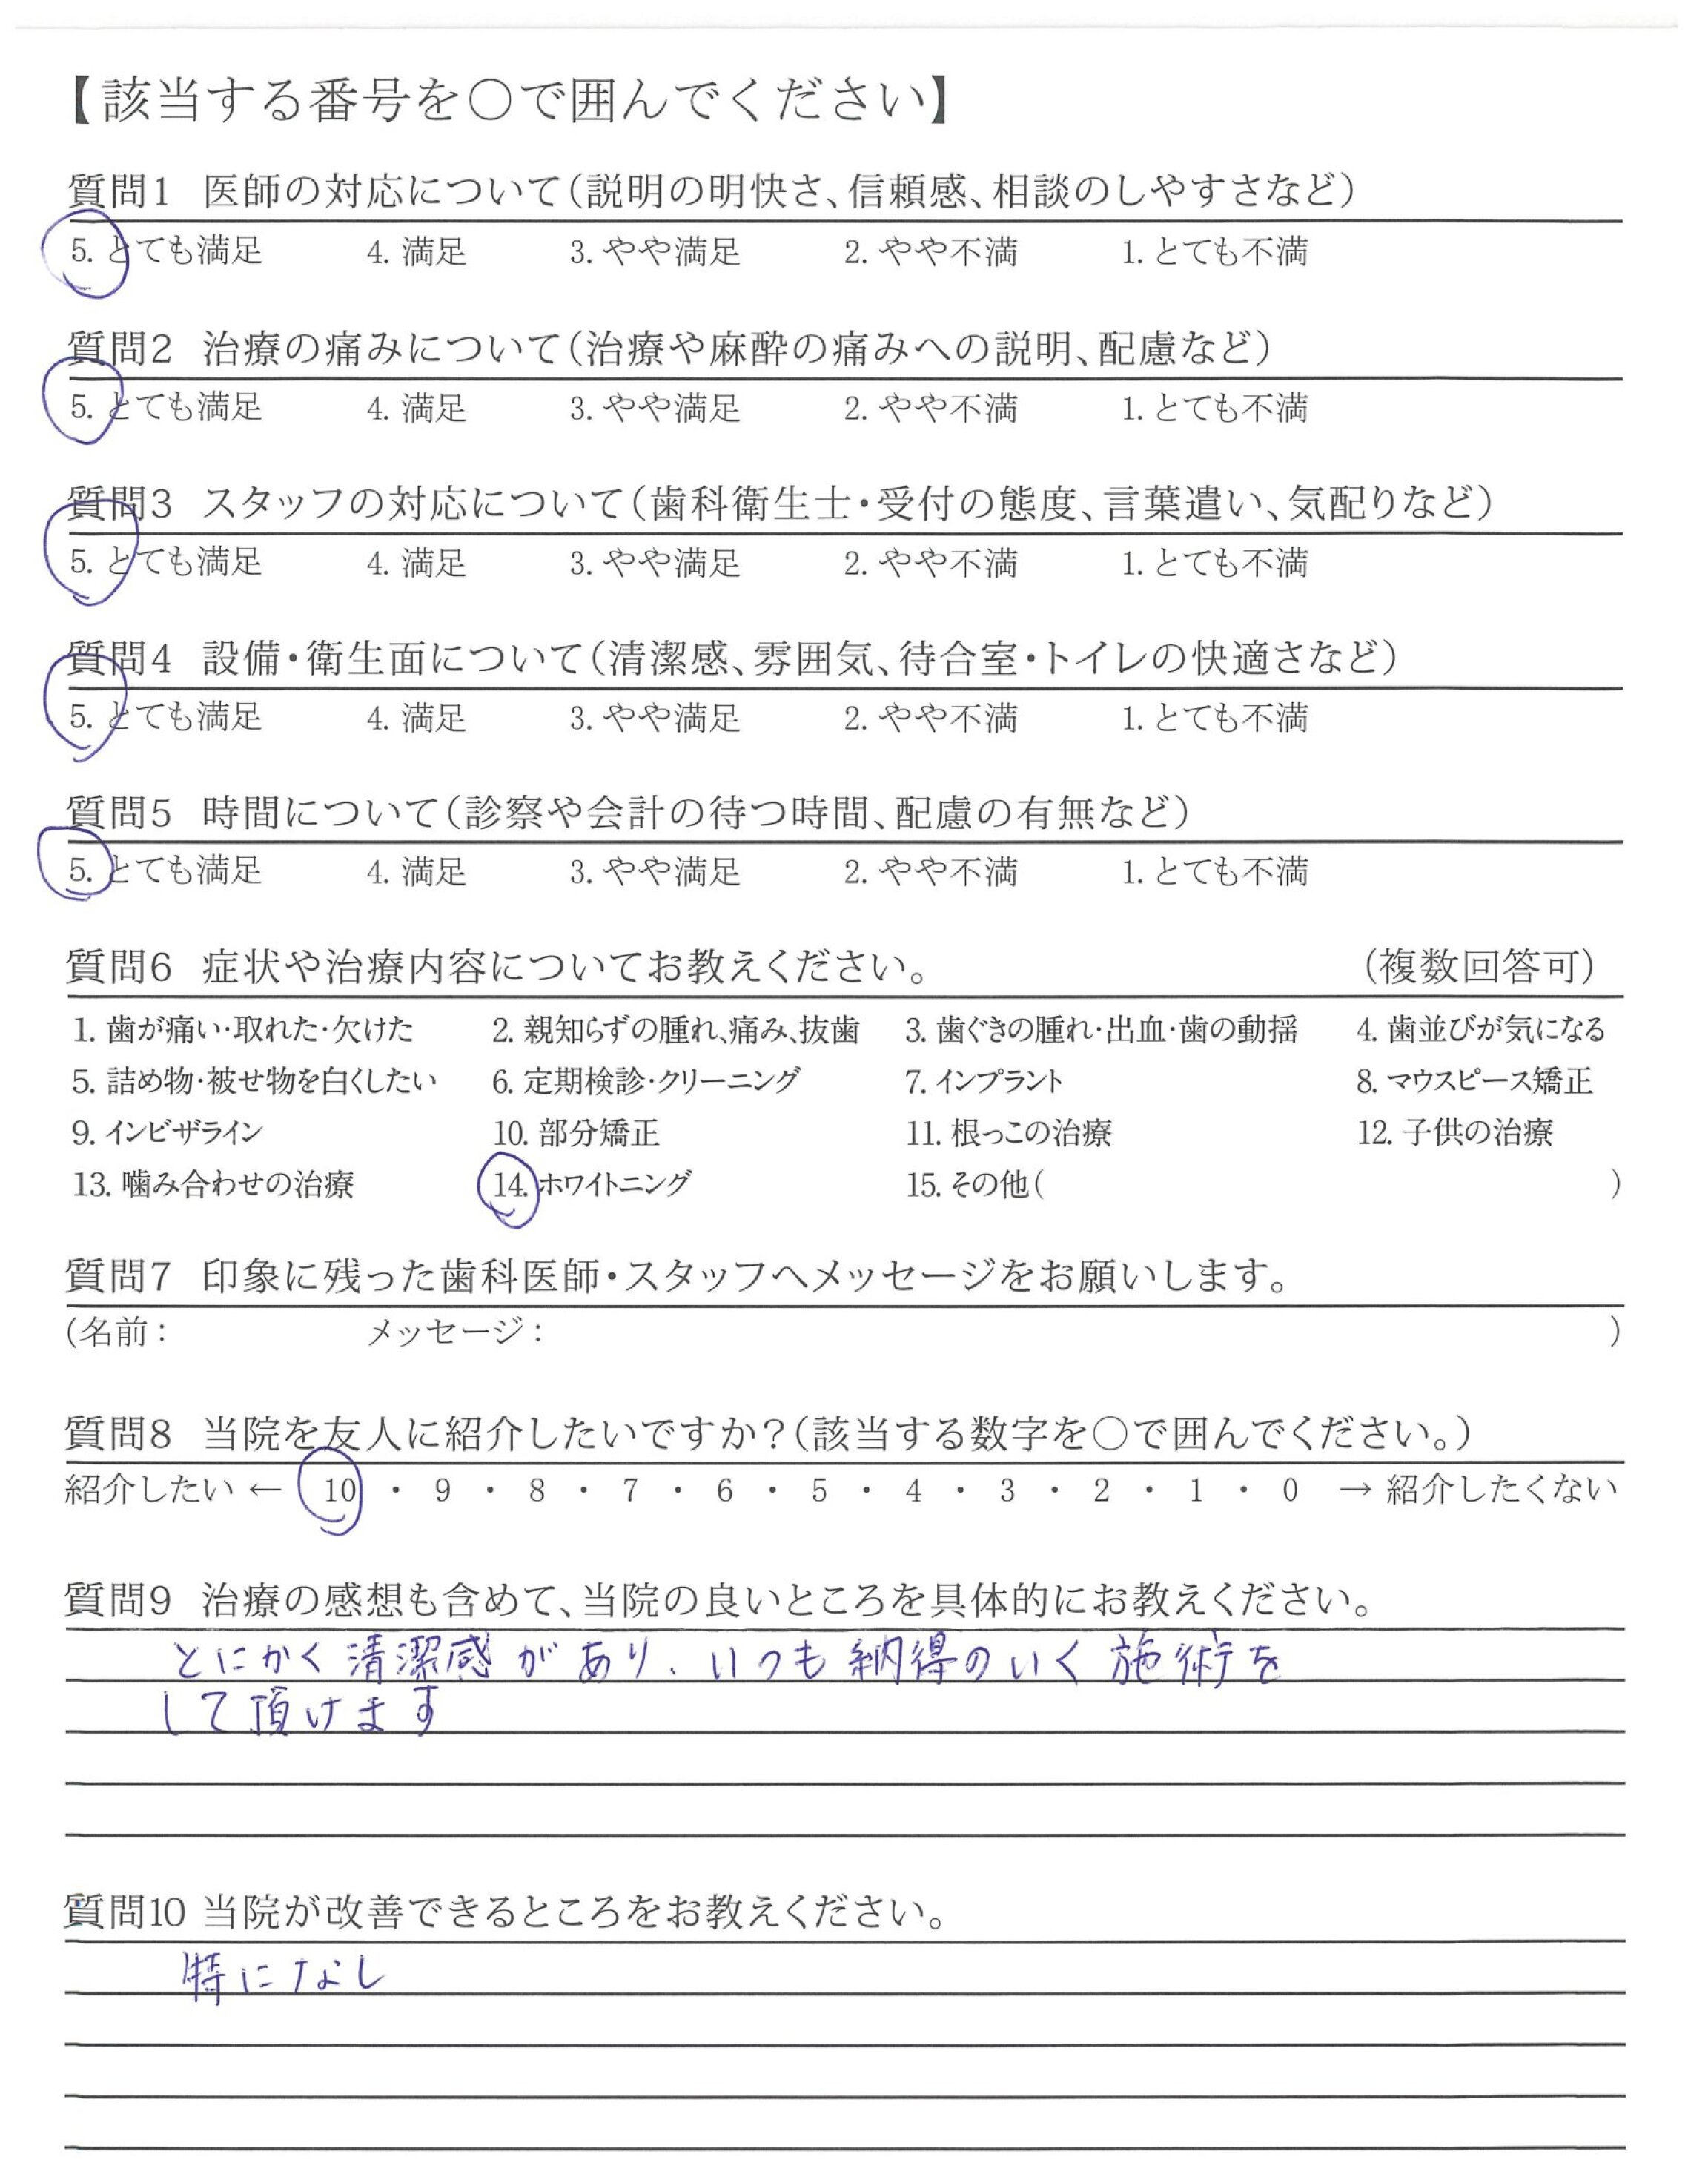 【該当する番号を○で囲んでください】
質問1 医師の対応について(説明の明快さ、信頼感、相談のしやすさなど)
5. とても満足 4. 満足 3. やや満足 2. やや不満 1. とても不満
質問2 治療の痛みについて(治療や麻酔の痛みへの説明、配慮など)
5. とても満足 4. 満足 3. やや満足 2. やや不満 1. とても不満
質問3 スタッフの対応について(歯科衛生士・受付の態度、言葉遣い、気配りなど)
5. とても満足 4. 満足 3. やや満足 2. やや不満 1. とても不満
質問4 設備・衛生面について(清潔感、雰囲気、待合室・トイレの快適さなど)
5. とても満足 4. 満足 3. やや満足 2. やや不満 1. とても不満
質問5 時間について(診察や会計の待つ時間、配慮の有無など)
5. とても満足 4. 満足 3. やや満足 2. やや不満 1. とても不満
質問6 症状や治療内容についてお教えください。 (複数回答可)
1. 歯が痛い・取れた・欠けた 2. 親知らずの腫れ、痛み、抜歯 3. 歯ぐきの腫れ・出血・歯の動揺 4. 歯並びが気になる
5. 詰め物・被せ物を白くしたい 6. 定期検診・クリーニング 7. インプラント 8. マウスピース矯正
9. インビザライン 10. 部分矯正 11. 根っこの治療 12. 子供の治療
13. 噛み合わせの治療 14. ホワイトニング 15. その他( )
質問7 印象に残った歯科医師・スタッフへメッセージをお願いします。
(名前: メッセージ: )
質問8 当院を友人に紹介したいですか?(該当する数字を○で囲んでください。)
紹介したい ← 10 ・ 9 ・ 8 ・ 7 ・ 6 ・ 5 ・ 4 ・ 3 ・ 2 ・ 1 ・ 0 → 紹介したくない
質問9 治療の感想も含めて、当院の良いところを具体的にお教えください。
とにかく清潔感があり、いつも納得のいく施術を
して頂けます
質問10 当院が改善できるところをお教えください。
特になし